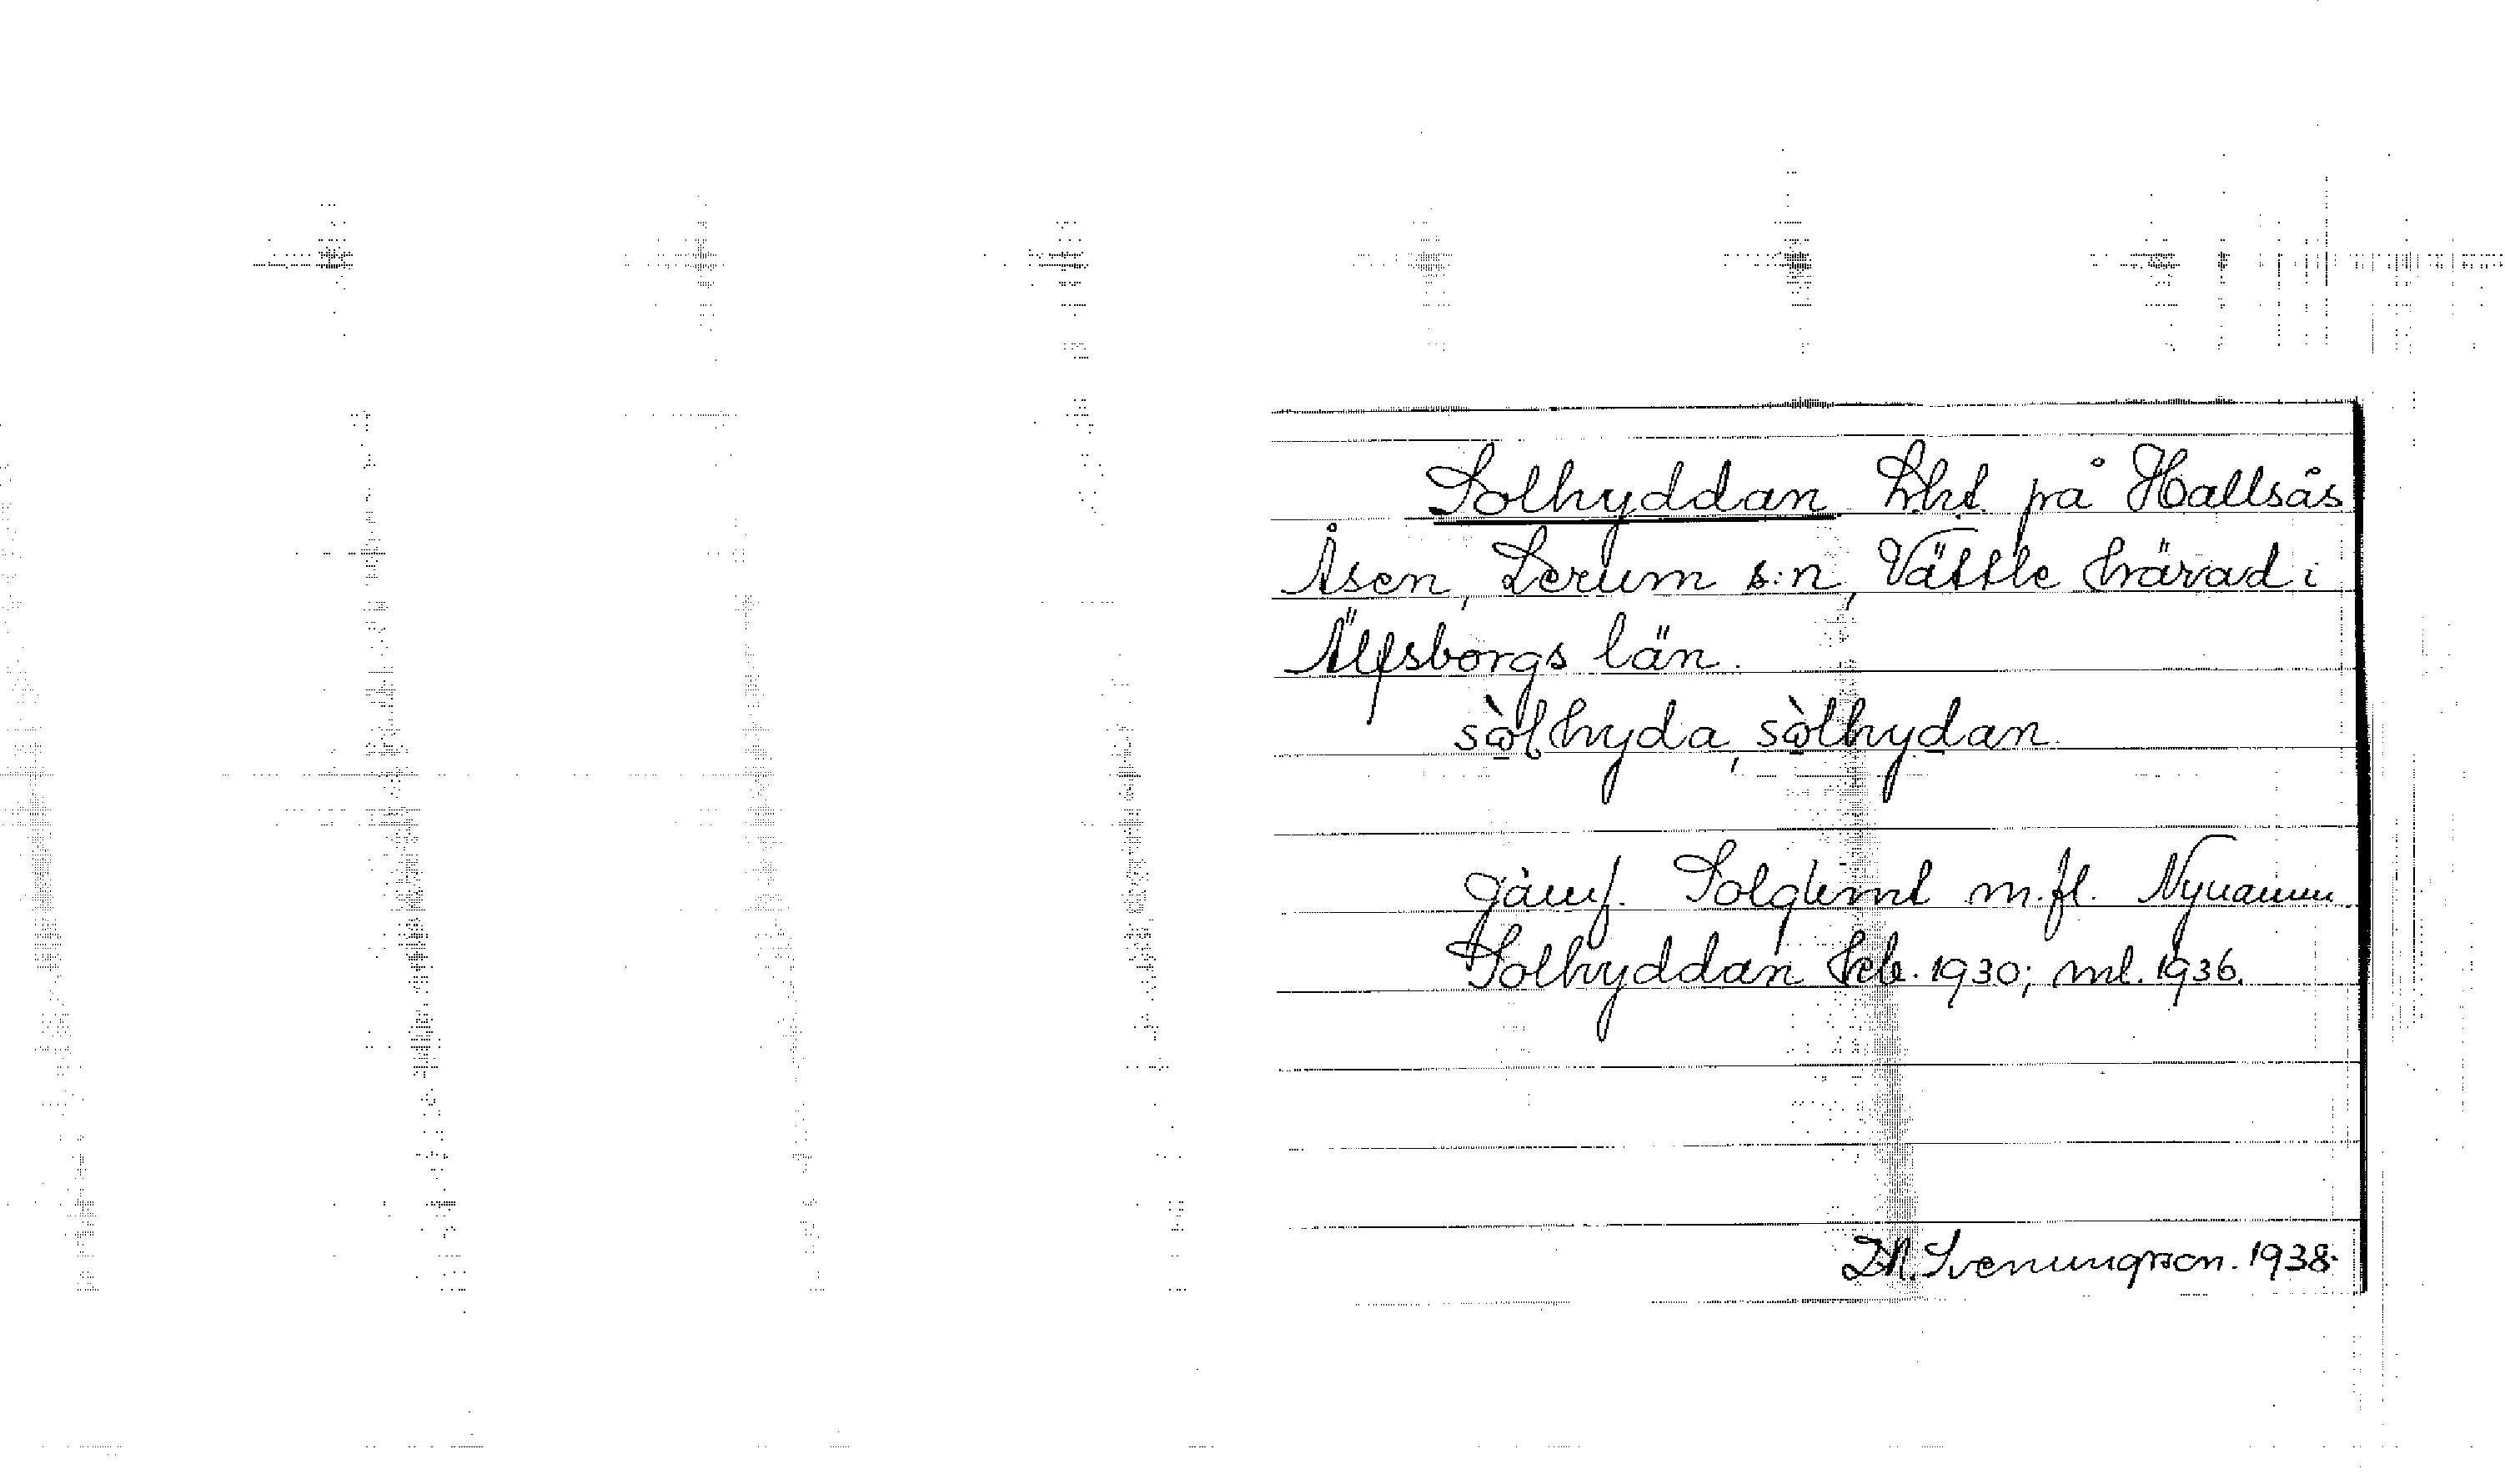 Solhyddan. Lht. på Hallsås
Åsen, Lerum s:n, Vättle härad i
Älfsborgs län.
sὼlhyda, sὼlhydan.
jämf. Solglimt m.fl. Nynamn.
Solhyddan Frlb. 1930; ml. 1936.
D.N. Svenungsson. 1938.